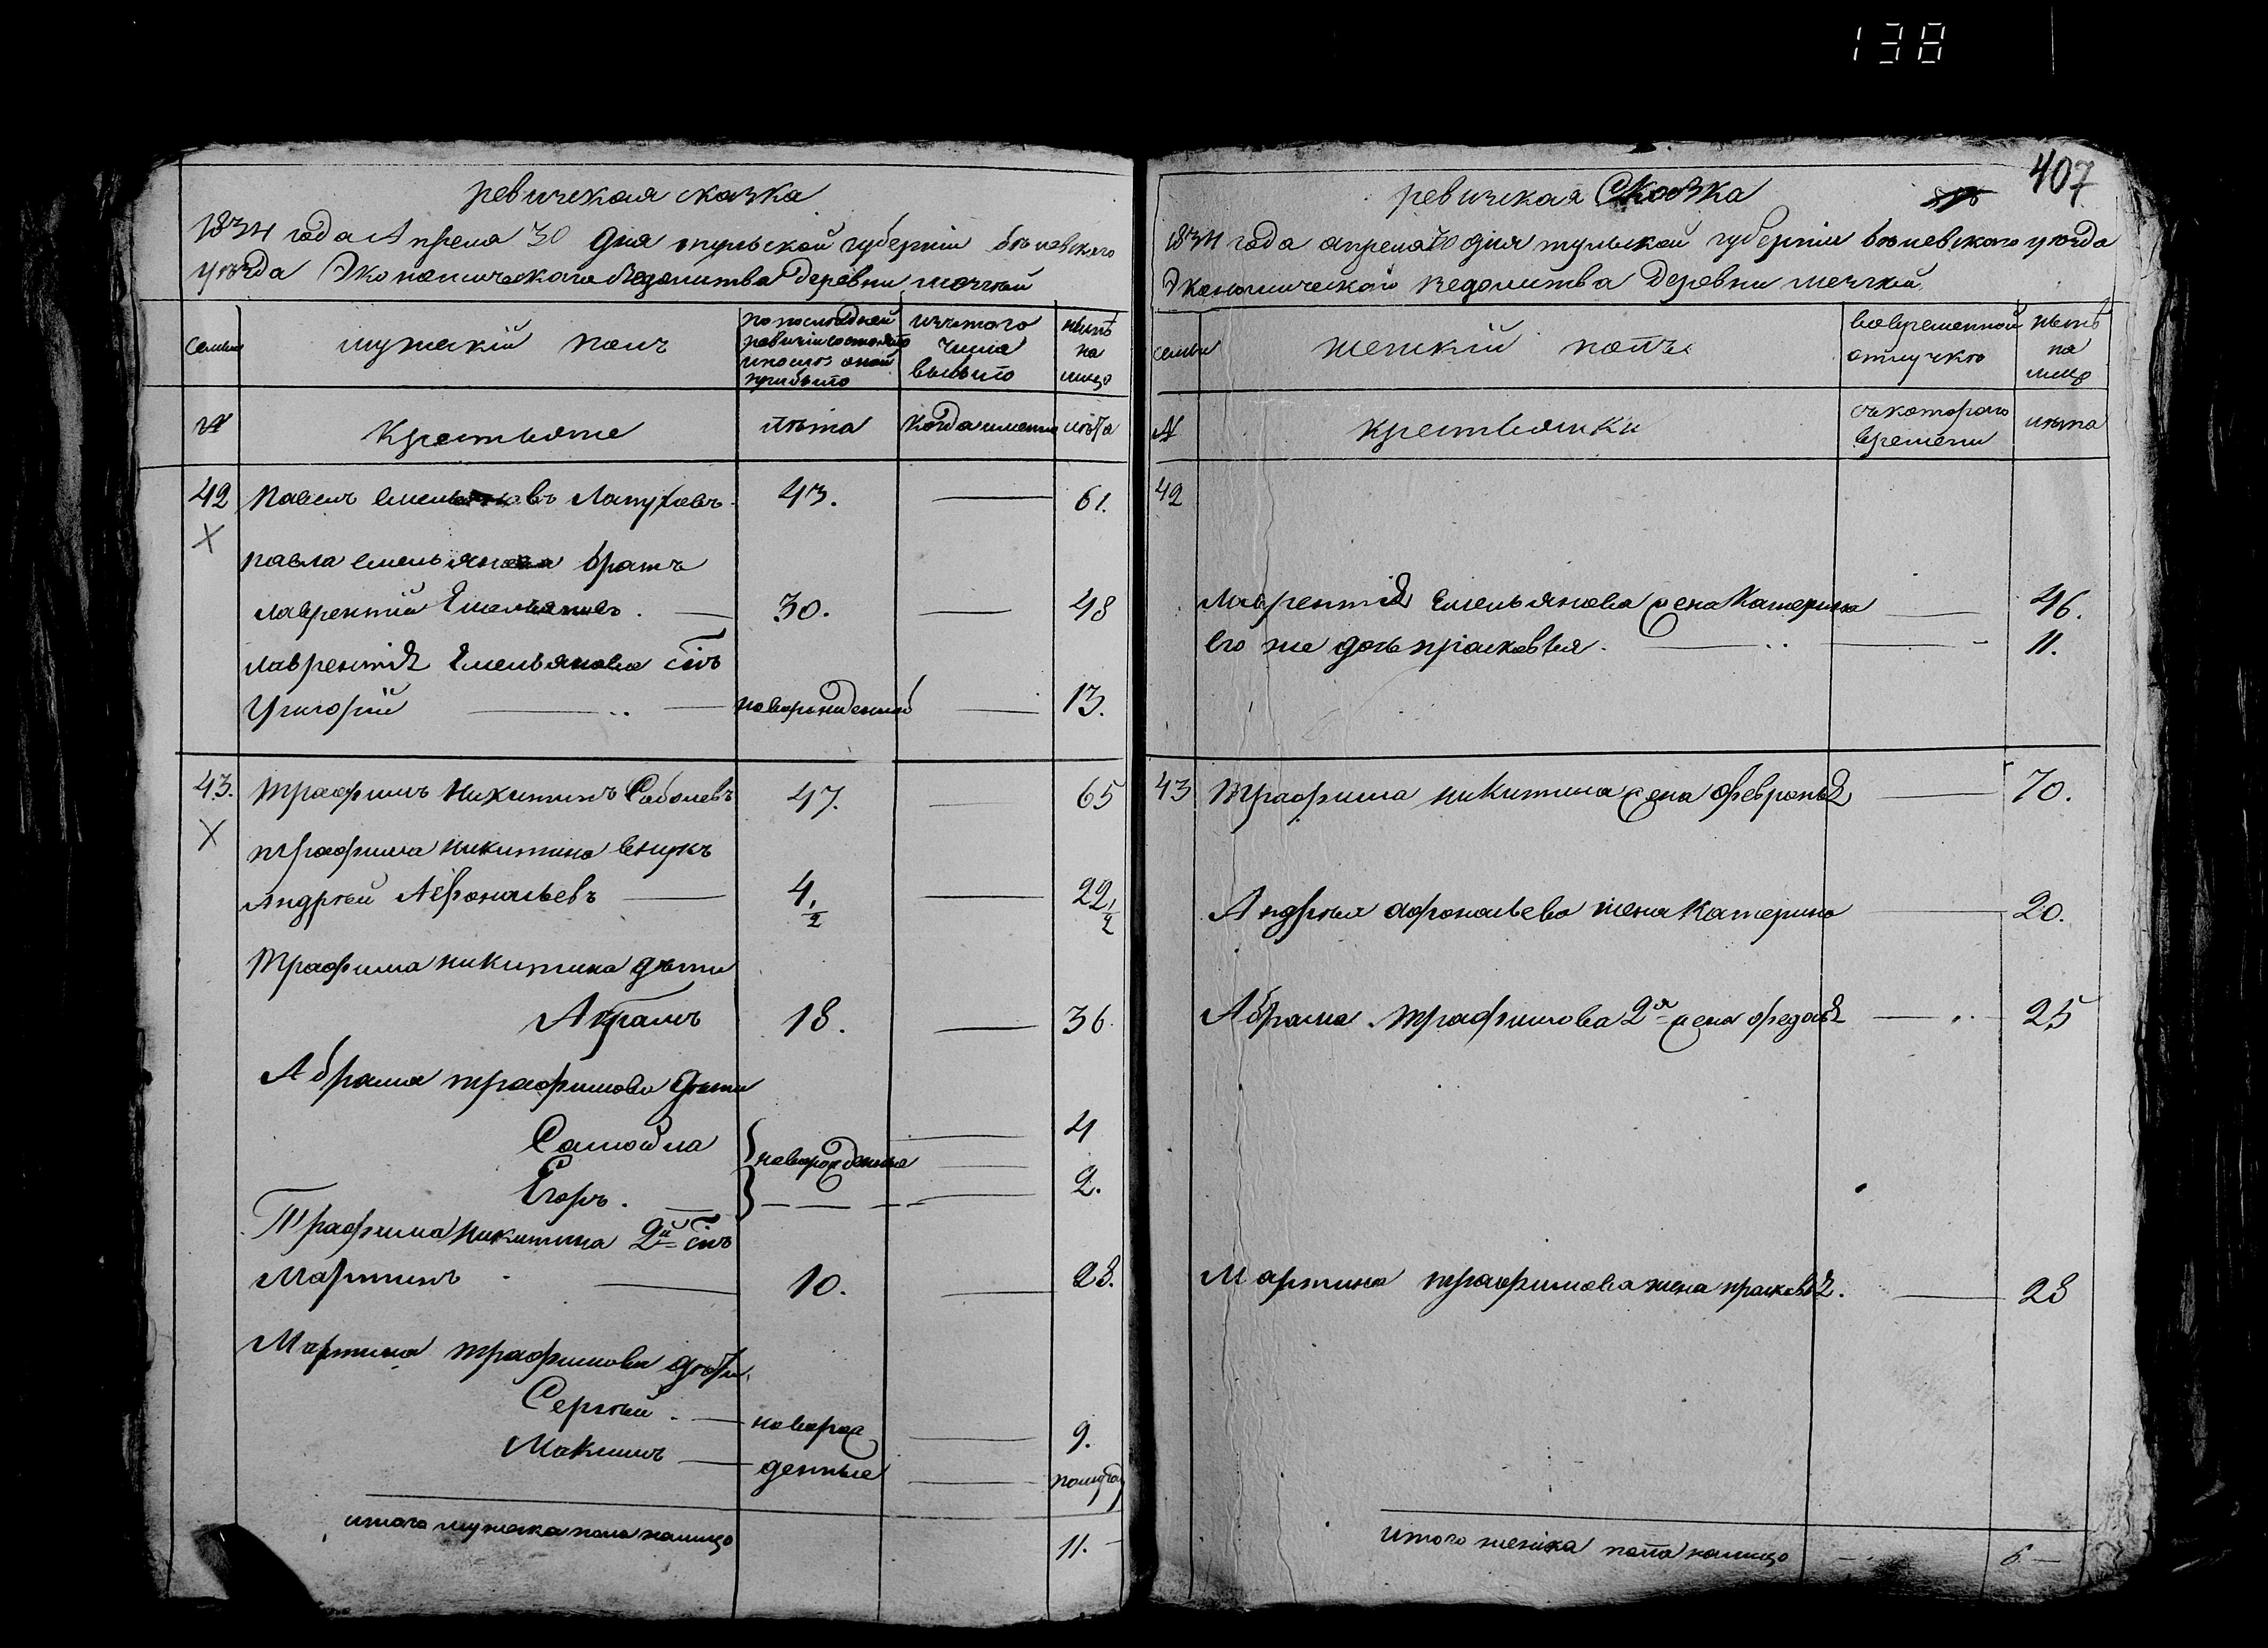 138
ревижская сказка
1834 года Апреля 30 дня тульской губернии белевскаго
уезда Экономическаго ведомства деревни
семьи
мужеский полъ
по последней ревизии состояло и после оной прибыло
изъ того числа выбыло
ныне на лицо
№
Крестьяне
лета
Когда именно
лета
42 павелъ Лапуховъ 43. 61.
павла братъ
лаврентий Емельяновъ. 30. 48
лаврентия Емельянова сынъ
Григорий новорожденный 13.
43. трафимъ никитинъ Соболевъ 47. 65
трафима никитина внукъ
Андрей Афонасьевъ 4 1/2 22 1/2
Трафима никитина дети
Абрамъ 18. 36.
Абрама трафимова дети
Самойла 4
новорожденные
Егоръ. 2.
Трафима никитина 2й сынъ
Мартинъ 10. 28.
Мартина трафимова дети
Сергей новорож 9.
Максимъ денные полугоду
итого мужеска пола налицо 11.
407
ревижская Сказка
1834 года апреля 30 дня тульской губернии белевскаго уезда
Экономическаго ведомства деревни
семьи
женский полъ
во временной отлучке
ныне на лицо
№
крестьянки
съ котораго времени
лета
42
лаврентия Емельянова жена Катерина 46.
Его же дочь прасковья. 11.
43 трафима никитина жена февронья 70.
Андрея афонасьева жена Катерина 20.
Абрама трафимова 2я жена федосья 25
Мартина трафимова жена прасковья. 28
итого женска пола налицо 6